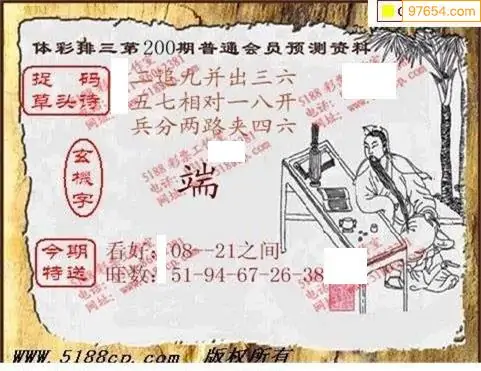 97654.com
体彩排三第200期普通会员预测资料
捉 码
草头诗
二追九并出三六
五七相对一八开
兵分两路夹四六
玄機字
端
今期
特送
看好: 08--21之间
旺数: 51-94-67-26-38
www.5188cp.com 版权所有